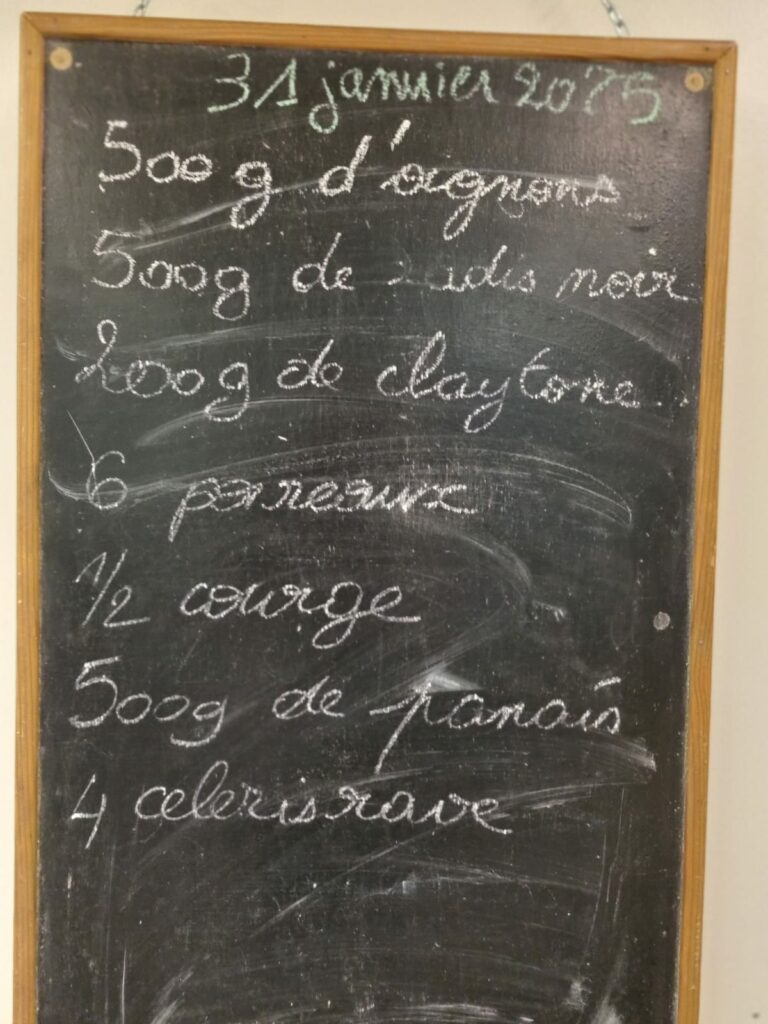 31 janvier 2025
500g d'oignons
500g de radis noir
200g de claytone
6 poireaux
1/2 courge
500g de panais
4 celerisrave